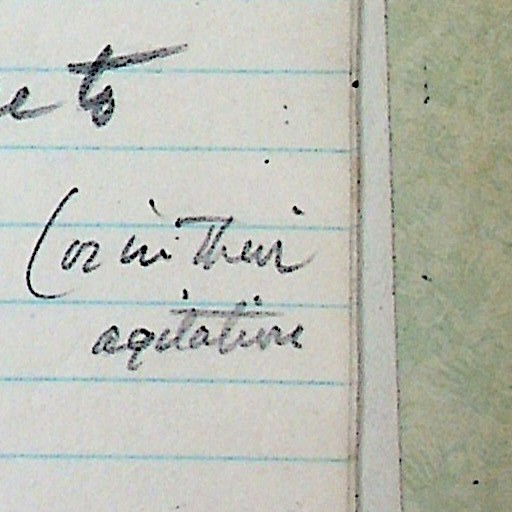 e to
(or in their
agitation